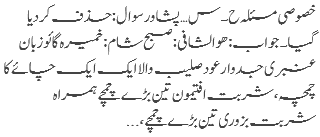 خصوصی مسئلہ ح۔ س… پشاور سوال: حذف کر دیا
گیا۔ جواب: ھوالشافی: صبح شام: خمیرہ گائوزبان
عنبری جدوار عود صلیب والا ایک ایک چائے کا
چمچہ، شربت افتیمون تین بڑے چمچے ہمراہ
شربت بزوری تین بڑے چمچے،…